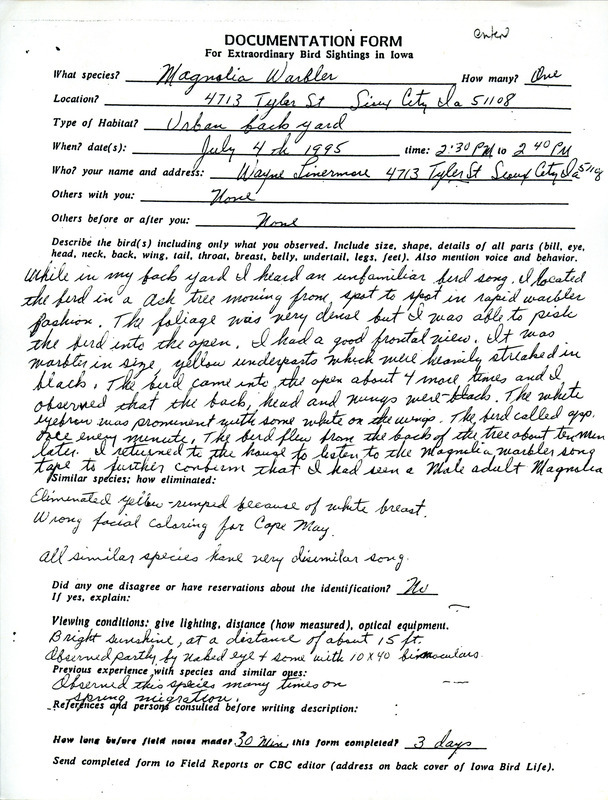 enter
DOCUMENTATION FORM
For Extraordinary Bird Sightings in Iowa
What species? Magnolia Warbler How many? One
Location? 4713 Tyler St Sioux City Ia 51108
Type of Habitat? Urban back yard
When? date(s): July 4th 1995 time: 2:30 PM to 2 40 PM
Who? your name and address: Wayne Livermore 4713 Tyler St Sioux City Ia 51108
Others with you: None
Others before or after you: None
Describe the bird(s) including only what you observed. Include size, shape, details of all parts (bill, eye,
head, neck, back, wing, tail, throat, breast, belly, undertail, legs, feet). Also mention voice and behavior.
While in my back yard I heard an unfamiliar bird song. I located
the bird in a ash tree moving from spot to spot in rapid warbler
fashion. The foliage was very dense but I was able to pish
the bird into the open. I had a good frontal view. It was
warbler in size, yellow underparts which were heavily streaked in
black. The bird came into the open about 4 more times and I
observed that the back, head and wings were black. The white
eyebrow was prominent with some white on the wings. The bird called app.
once every minute. The bird flew from the back of the tree about ten min
later. I returned to the house to listen to the Magnolia warbler song
tape to further confirm that I had seen a Male adult Magnolia
Similar species; how eliminated:
Eliminated yellow-rumped because of white breast.
Wrong facial coloring for Cape May.
All similar species have very disimilar song.
Did any one disagree or have reservations about the identification? No
If yes, explain:
Viewing conditions: give lighting, distance (how measured), optical equipment.
Bright sunshine, at a distance of about 15 ft.
Observed partly by naked eye + some with 10 X 40 binoculars.
Previous experience with species and similar ones:
Observed this species many times on
spring migration.
References and persons consulted before writing description:
How long before field notes made? 30 Min. this form completed? 3 days
Send completed form to Field Reports or CBC editor (address on back cover of Iowa Bird Life).